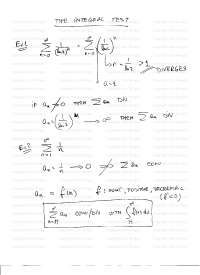 THE INTEGRAL TEST
Ex1 ∞ Σ n=0 1/(ln2)^n = ∞ Σ n=0 (1/ln2)^n
r = 1/ln2 > 1
DIVERGES
a=1
if an ↛ 0 THEN Σ an DIV
an = (1/ln2)^n → ∞ THEN Σ an DIV
Ex2 ∞ Σ n=1 1/n
an = 1/n → 0 ⇏ Σ an CONV
an = f(n) f: CONT, POSITIVE, DECREASING
(f'<0)
∞ Σ an CONV/DIV WITH ∫ ∞ f(x)dx